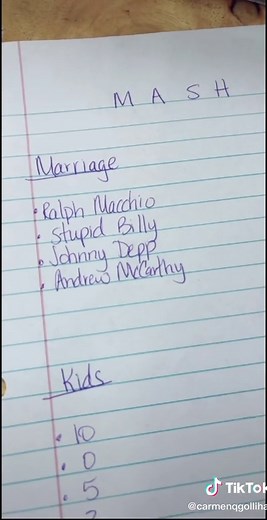 M A S H
Marriage
• Ralph Macchio
• Stupid Billy
• Johnny Depp
• Andrew McCarthy
Kids
• 10
• 0
• 5
TikTok
@carmenqgolliha